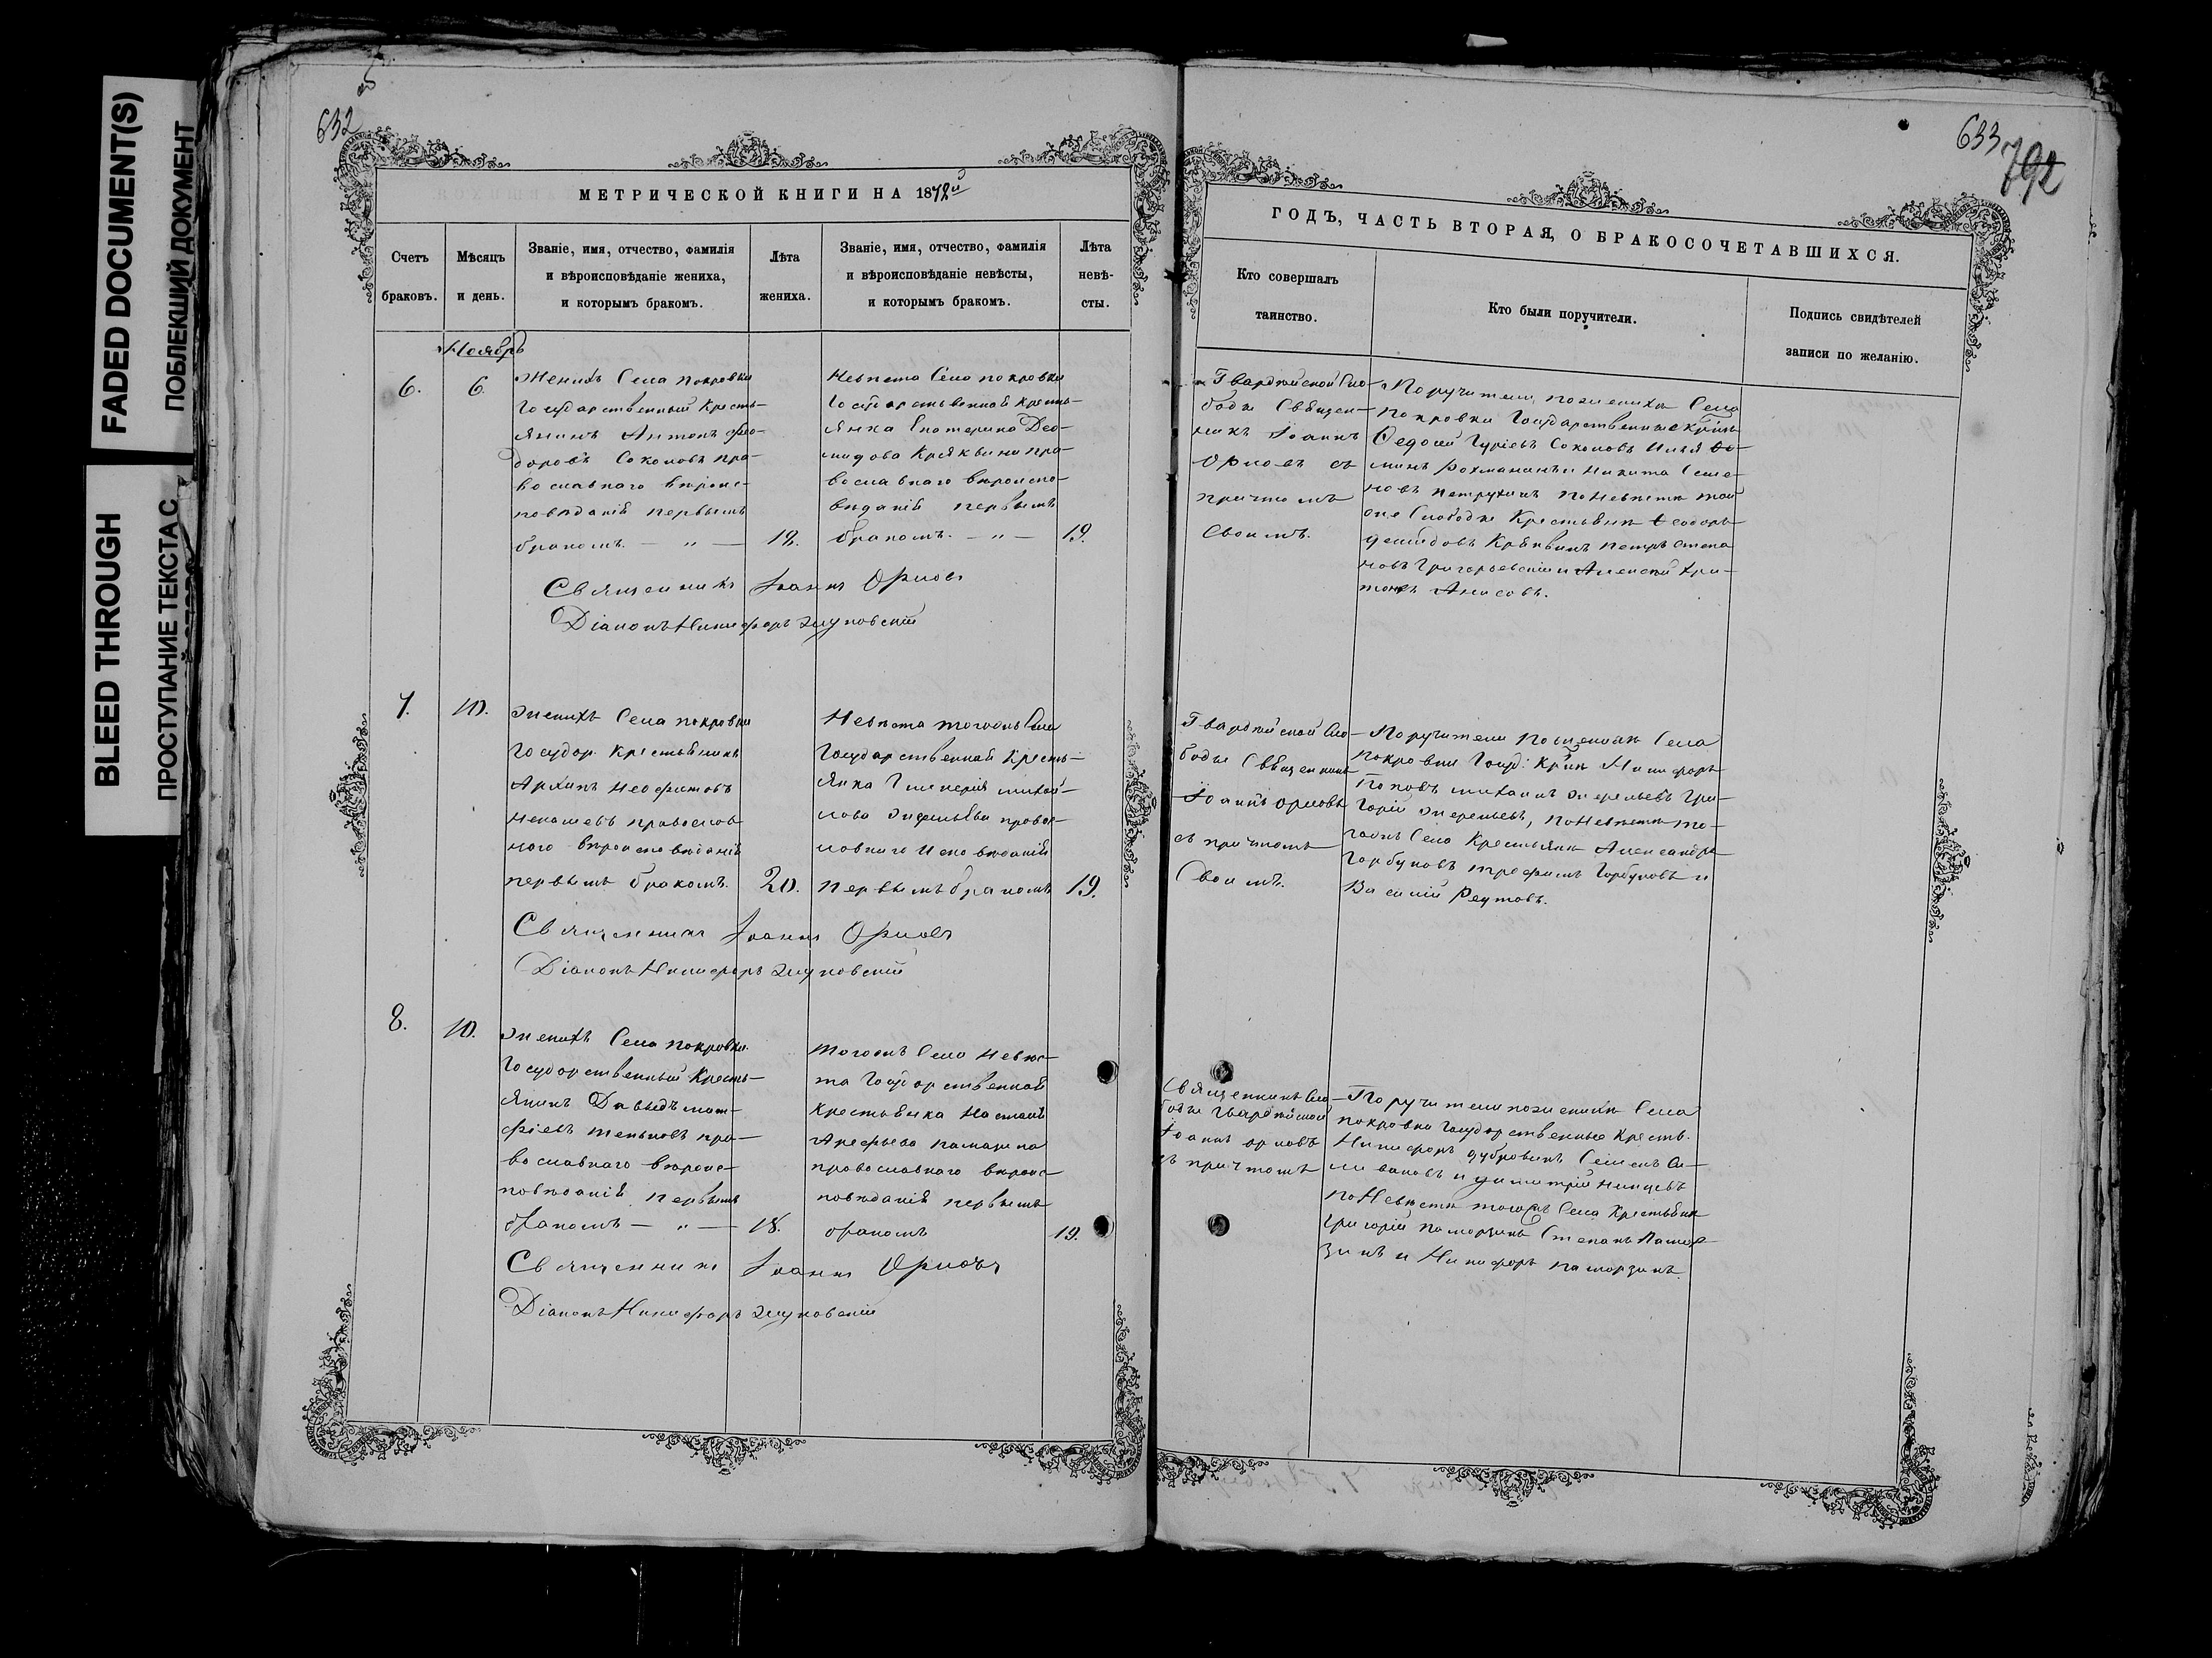 FADED DOCUMENT(S)
ПОБЛЕКШИЙ ДОКУМЕНТ
BLEED THROUGH
ПРОСТУПАНИЕ ТЕКСТА С
632
633
792
МЕТРИЧЕСКОЙ КНИГИ НА 1872й
Счетъ
браковъ.
Мѣсяцъ
и день.
Званіе, имя, отчество, фамилія
и вѣроисповѣданіе жениха,
и которымъ бракомъ.
Лѣта
жениха.
Званіе, имя, отчество, фамилія
и вѣроисповѣданіе невѣсты,
и которымъ бракомъ.
Лѣта
невѣ-
сты.
Ноябрь
6.
6.
Женихъ Села Покровки
Государственный Кресть-
янинъ Антонъ Фео-
доровъ Соколовъ пра-
вославнаго вѣроис-
повѣданія первымъ
бракомъ. — „ —
Невѣста Села покровки
Государственная Кресть-
янка Екатерина Део-
мидова Креквина пра-
вославнаго вѣроиспо-
вѣданія первымъ
бракомъ. — „ —
19.
Священникъ Іоаннъ Орловъ
Діаконъ Никифоръ Жуковскій
7.
10.
Женихъ Села покровки
Государ. Крестьянинъ
Архипъ Неофитовъ
православ-
наго вѣроисповѣданія
первымъ бракомъ.
20.
Невѣста тогожъ Села
Государственная Кресть-
янка Гликерія Михай-
лова правос-
лавнаго исповѣданія
первымъ бракомъ
19.
Священникъ Іоаннъ Орловъ
Діаконъ Никифоръ Жуковскій
8.
10.
Женихъ Села покровки
Государственный Кресть-
янинъ Давыдъ Мат-
фіевъ пра-
вославнаго вѣроис-
повѣданія первымъ
бракомъ — „ —
18.
тогожъ Села Невѣс-
та Государственная
Крестьянка Настасія
Арефьева
православнаго вѣроис-
повѣданія первымъ
бракомъ
19.
Священникъ Іоаннъ Орловъ
Діаконъ Никифоръ Жуковскій
ГОДЪ, ЧАСТЬ ВТОРАЯ, О БРАКОСОЧЕТАВШИХСЯ.
Кто совершалъ
таинство.
Кто были поручители.
Подпись свидѣтелей
записи по желанію.
Гвардейской Сло-
боды Священ-
никъ Іоаннъ
Орловъ съ
причтомъ
Своимъ.
Поручители, по женихѣ Села
покровки Государственные
Федосій Гуріевъ Соколовъ Илья
и Никита Семе-
новъ Петрухинъ по Невѣстѣ той
же Слободы Крестьяне Феодоръ
Петръ Степа
новъ Григорьевскій и Алексей
Гвардейской Сло-
боды Священникъ
Іоаннъ Орловъ
съ причтомъ
Своимъ.
Поручители по женихѣ Села
покровки Никифоръ
Поповъ Михаилъ Жеребьевъ Гри-
горій Жеребьевъ, по Невѣстѣ то-
гожъ Села Крестьяне Александръ
Горбуновъ Трефилъ Горбуновъ и
Василій Реутовъ.
Священникъ Сло-
боды Гвардейской
Іоаннъ Орловъ
съ причтомъ
Поручители по женихѣ Села
покровки Государственные Крестья.
Никифоръ Дубровинъ Семенъ Се-
ливановъ и Димитрій
по Невѣстѣ тогожъ Села Крестьяне
Григорій Паморзинъ Степанъ Памор-
зинъ и Никифоръ Паморзинъ.